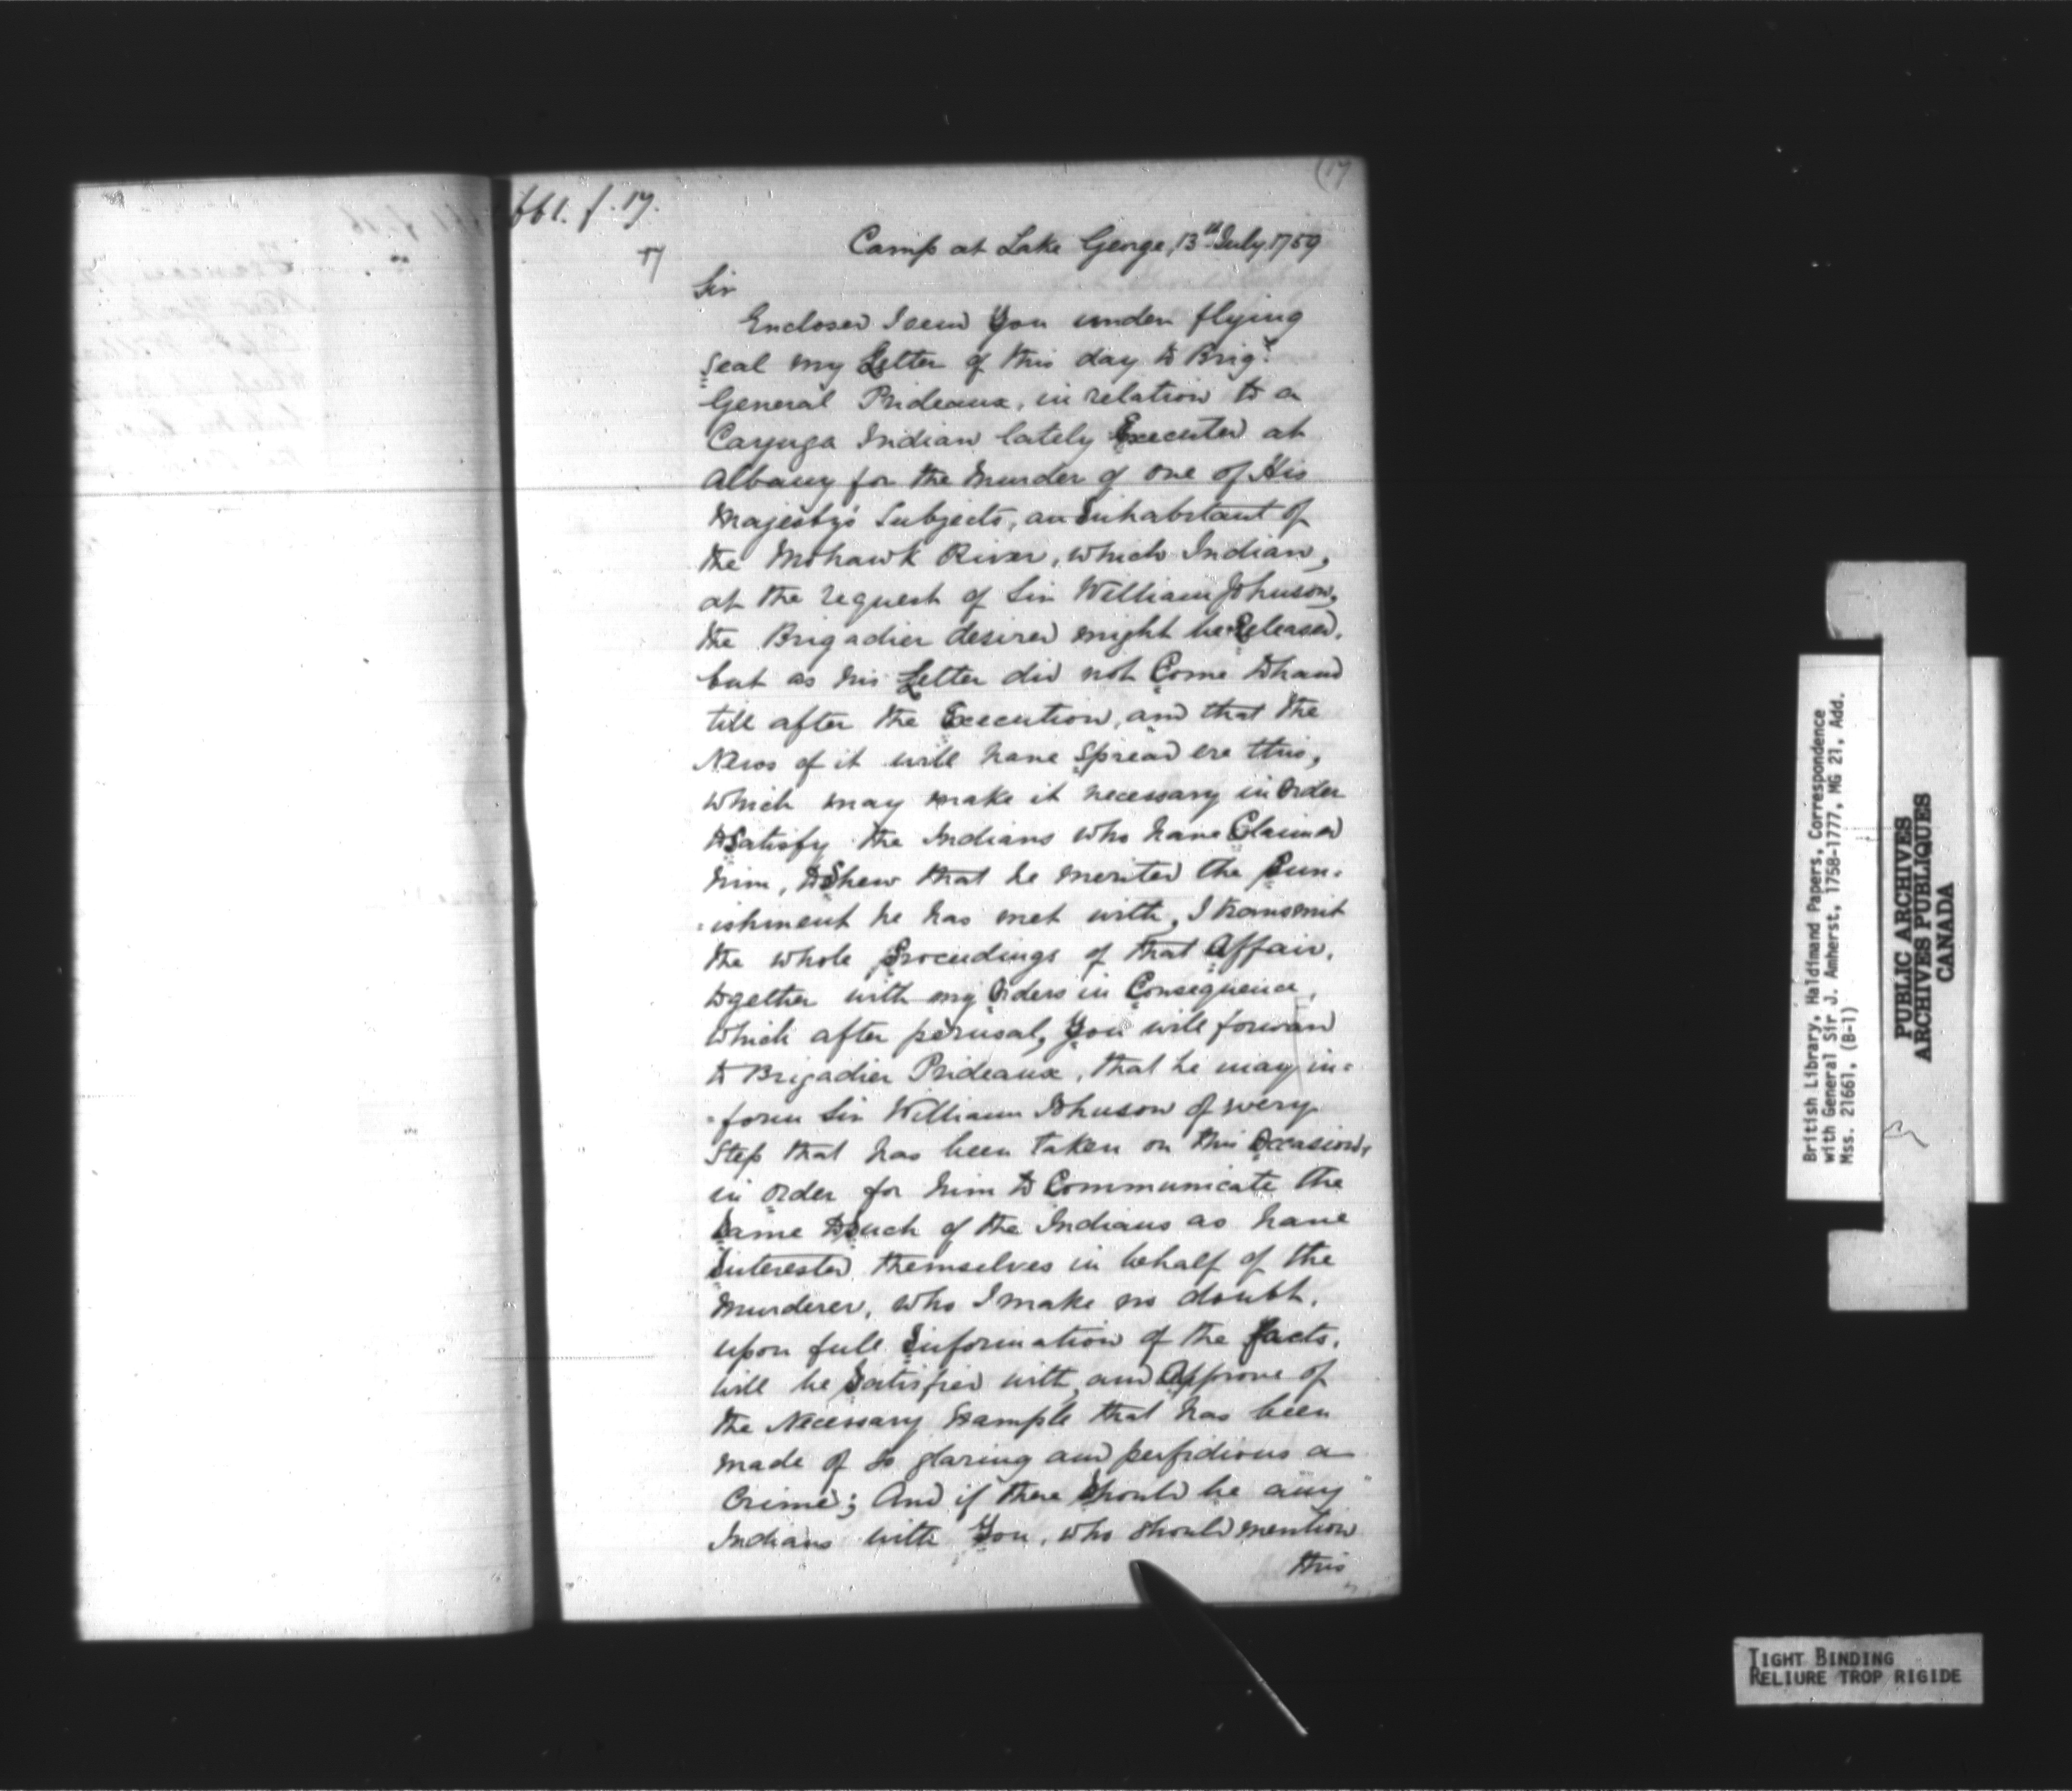 661. f. 17.
(17
17
Camp at Lake George, 13th July, 1759
Sir
Enclosed I send You under flying
Seal my Letter of this day to Brigr
General Prideaux, in relation to a
Cayuga Indian lately Executed at
Albany for the Murder of one of His
Majesty's Subjects, an Inhabitant of
the Mohawk River, which Indian,
at the request of Sir William Johnson,
the Brigadier desired might be Released,
but as his Letter did not Come to hand
till after the Execution, and that the
News of it will have Spread ere this,
which may make it necessary in Order
to Satisfy the Indians who have Claimed
him, to Shew that he merited the Pun-
=ishment he has met with, I transmit
the whole Proceedings of that Affair,
together with my Orders in Consequence,
which after perusal, You will forward
to Brigadier Prideaux, that he may in=
=form Sir William Johnson of every
Step that has been taken on this Occasion,
in Order for him to Communicate the
Same to Such of the Indians as have
Interested themselves in behalf of the
Murderer, who I make no doubt,
upon full Information of the facts,
will be Satisfied with, and Approve of
the Necessary Example that has been
made of So glaring and perfidious a
Crime; And if there Should be any
Indians with You, who should mention
this
British Library, Haldimand Papers, Correspondence
with General Sir J. Amherst, 1758-1777, MG 21, Add.
Mss. 21661, (B-1)
PUBLIC ARCHIVES
ARCHIVES PUBLIQUES
CANADA
TIGHT BINDING
RELIURE TROP RIGIDE